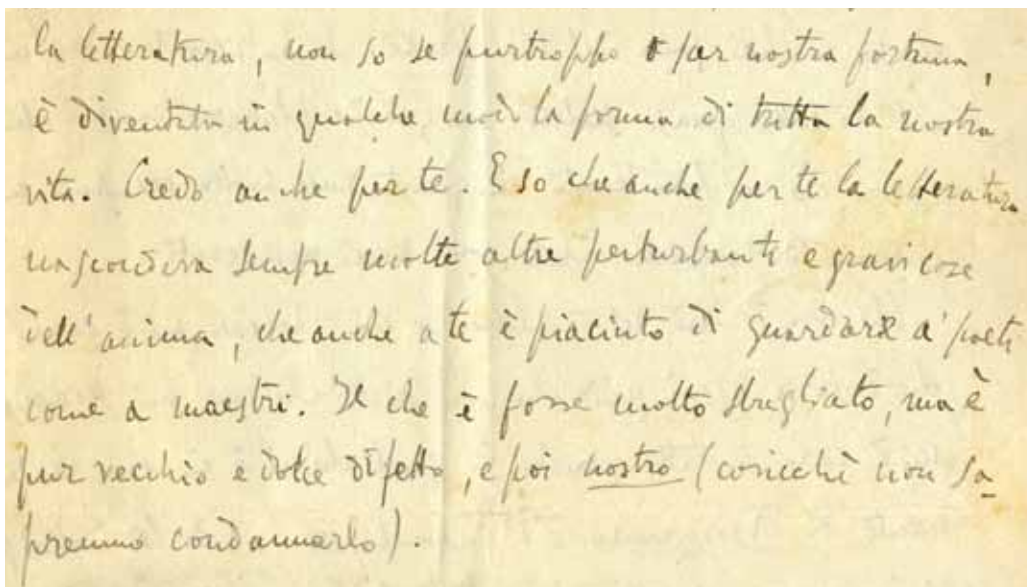 la letteratura, non so se purtroppo o per nostra fortuna,
è diventata in qualche modo la forma di tutta la nostra
vita. Credo anche per te. E so che anche per te la letteratura
nasconderà sempre molte altre perturbanti e gravi cose
dell'anima, che anche a te è piaciuto di guardare a' poeti
come a maestri. Il che è forse molto sbagliato, ma è
pur vecchio e dolce difetto, e poi nostro (cosicchè non sa-
premmo condannarlo).